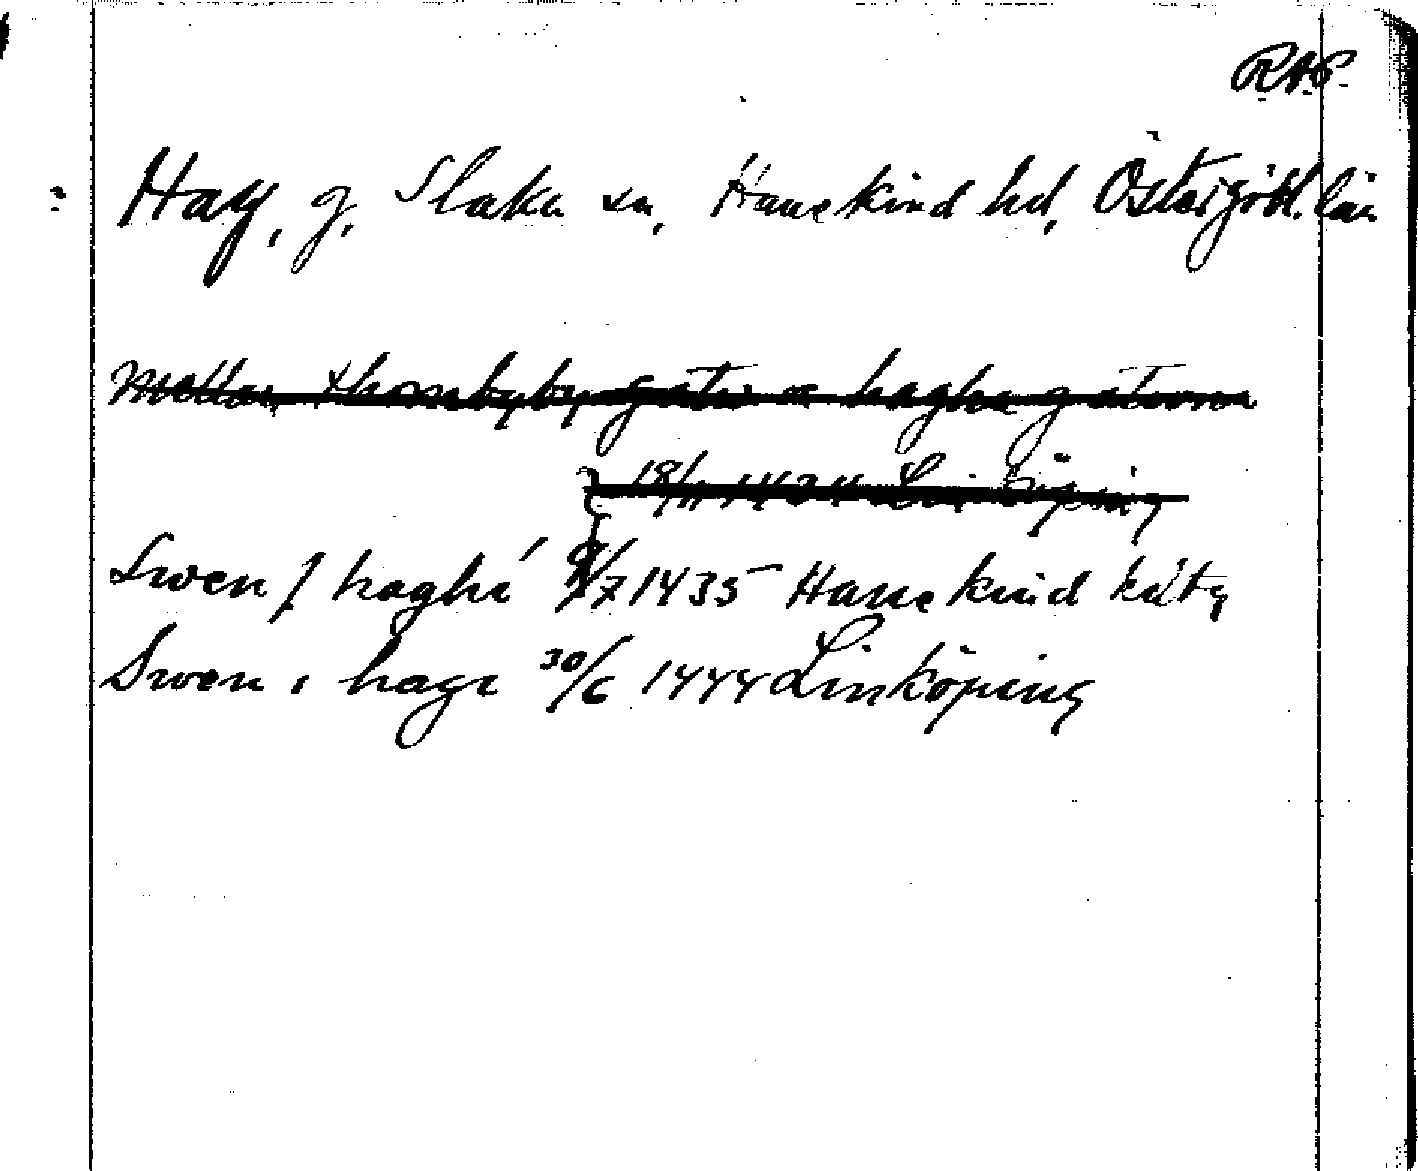 RAP.
Hag, g, Slaka sn, Hanekind hd, Östergötl. län
Mellan thornbyby gatw oc haghe g atwna
18/11 1424 Linköping
Swen j haghe 9/7 1435 Hanekind
Swen i hage 30/6 1444 Linköping